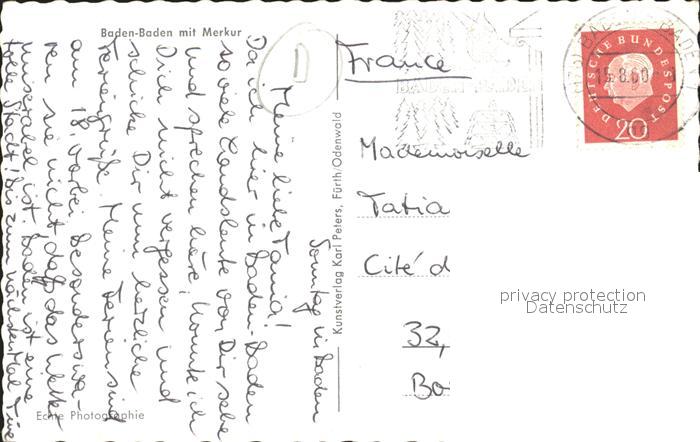 Baden-Baden mit Merkur
Sonntag in Baden
Meine liebe Tania!
Da ich hier in Baden-Baden
so viele Landsleute von Dir sehe
und sprechen höre, konnte ich
Dich nicht vergessen und
schicke Dir nun herzliche
Feriengrüße. Meine Ferien sind
am 18. vorbei. Besonders
ren sie nicht, daß das Wetter
miserabel ist. Baden ist eine
tolle Stadt! Bis zum nächsten Mal
Echte Photographie
Kunstverlag Karl Peters, Fürth/Odenwald
France
Mademoiselle
Tatia
Cité d
32,
Bo
BADEN-BADEN
15.8.60
DEUTSCHE BUNDESPOST
20
privacy protection
Datenschutz